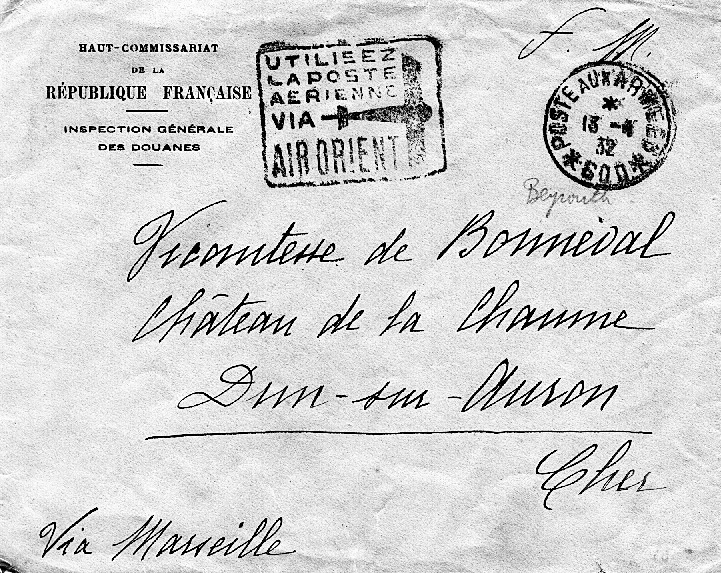 HAUT-COMMISSARIAT
DE LA
RÉPUBLIQUE FRANÇAISE
INSPECTION GÉNÉRALE
DES DOUANES
UTILISEZ
LA POSTE
AERIENNE
VIA
AIR ORIENT
F. M.
POSTE AUX ARMEES
13 - 4
32
* 600 *
Beyrouth
Vicomtesse de Bonneval
Château de la Chaume
Dun-sur-Auron
Cher
Via Marseille